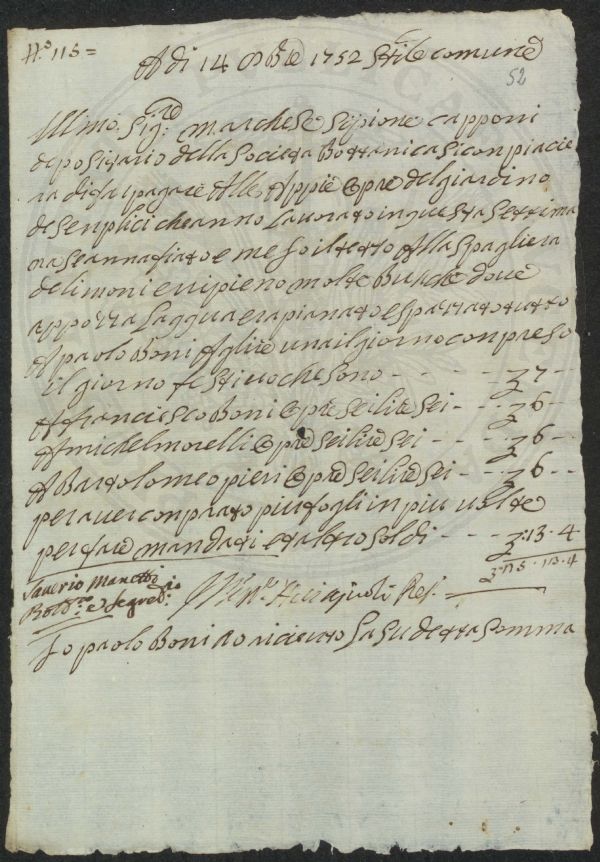 N.º 115=
A di 14 8Bre 1752 Stile comune
52
Ill mo. Sig:re marchese Sipione capponi
depositario della Societa Bottanica Siconpiacie
ra di far pagare Alle Appie Opre del giardino
de senplici che anno Lavorato in questa Settima
na Se anna fiato e meso il tetto Alla Spagliera
de limoni e ripieno molte Busche dove
apporta Laqqua e rapianato e spazzato tutto
A paolo Boni A lire una il giorno conpreso
il giorno festivo che sono - - - - - - - - ʒ 7 - -
A franciesco Boni Opre sei lire sei - - - ʒ 6 - -
A michel morelli Opre sei lire sei - - - - ʒ 6 - -
A Bartolomeo pieri Opre sei lire sei - - ʒ 6 - -
per aver conprato piu fogli in piu volte
per fare mandati e taltro soldi - - - - ʒ :13 · 4
Saverio Manetti
Segred:rio
Io paolo Boni o riceuto La su detta Somma